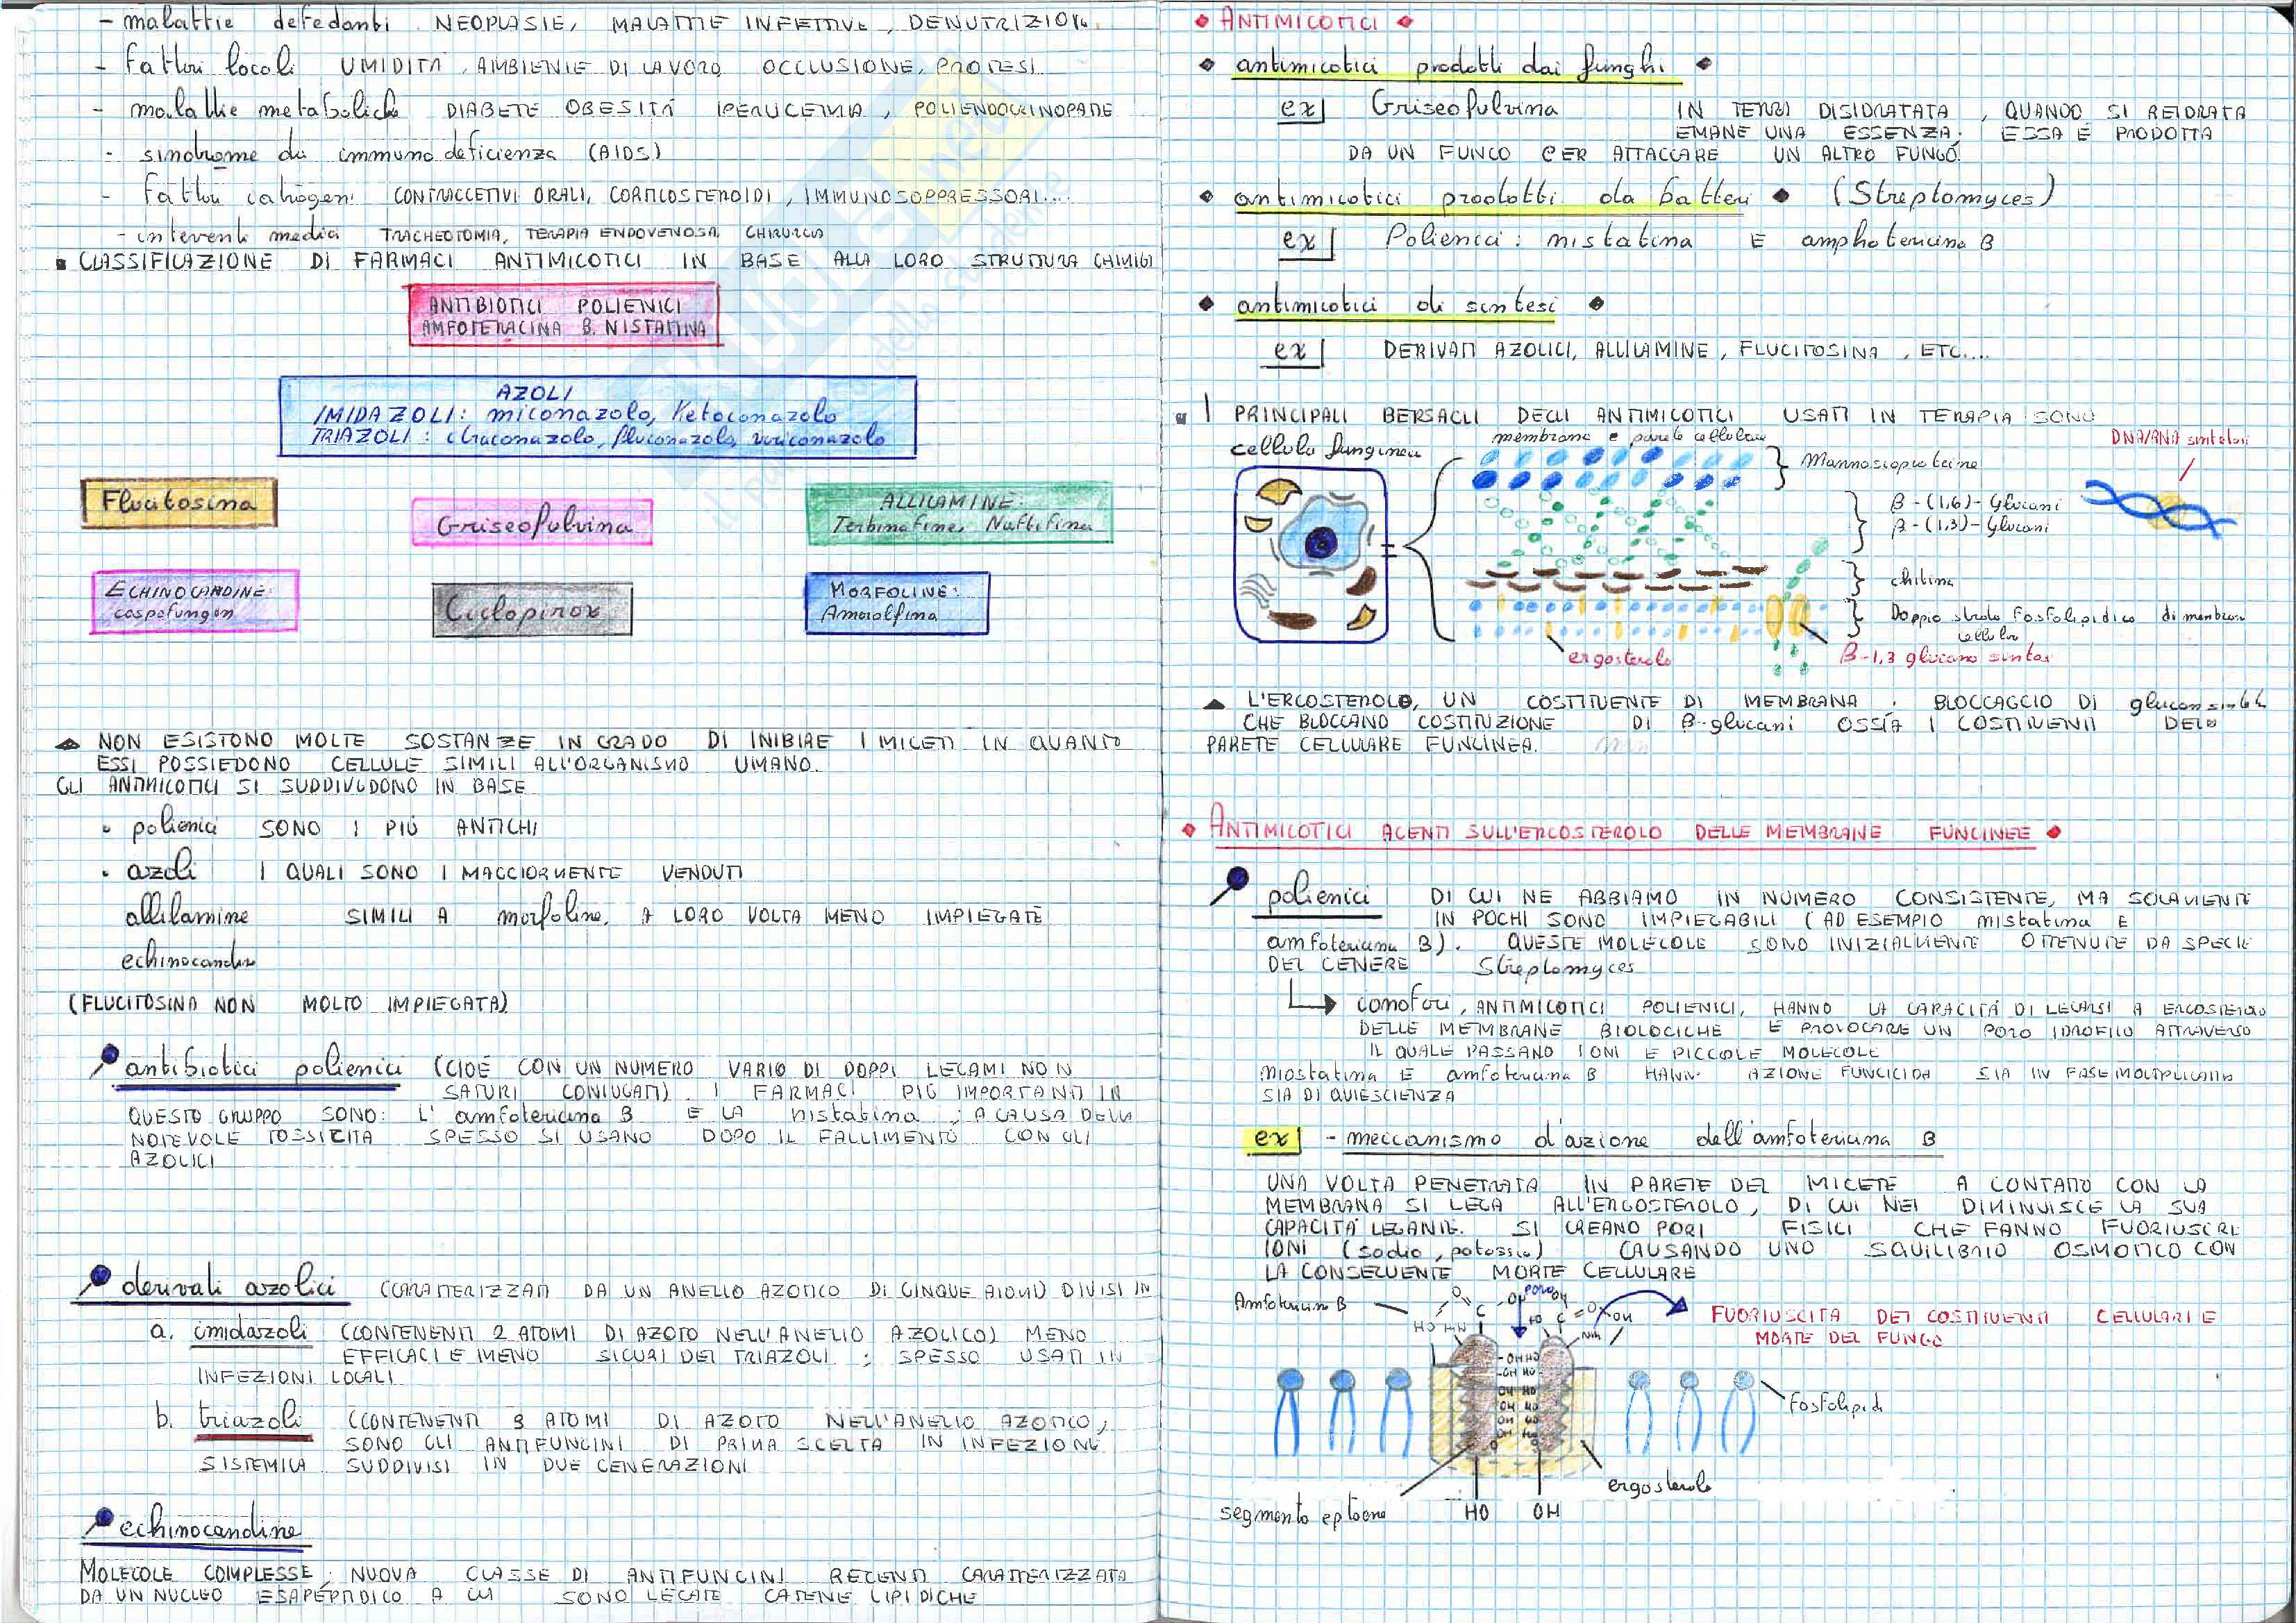 - malattie defedanti NEOPLASIE, MALATTIE INFETTIVE, DENUTRIZION.
- fattori locali UMIDITÀ, AMBIENTE DI LAVORO, OCCLUSIONE, PROTESI
- malattie metaboliche DIABETE OBESITÀ , POLIENDOCRINOPATIE
- sindrome da immunodeficienza (AIDS)
- fattori iatrogeni CONTRACCETIVI ORALI, CORTICOSTEROIDI, IMMUNOSOPPRESSORI....
- interventi medici TRACHEOTOMIA, TERAPIA ENDOVENOSA, CHIRURGIA
CLASSIFICAZIONE DI FARMACI ANTIMICOTICI IN BASE ALLA LORO STRUTTURA CHIMICA
ANTIBIOTICI POLIENICI
AMFOTERACINA B, NISTATINA
AZOLI
IMIDAZOLI: miconazolo, Ketoconazolo
TRIAZOLI: itraconazolo, fluconazolo, voriconazolo
Flucitosina
Griseofulvina
ALLILAMINE:
Terbinafine, Naftifina
ECHINOCANDINE:
caspofungin
Ciclopirox
MORFOLINE:
Amorolfina
NON ESISTONO MOLTE SOSTANZE IN GRADO DI INIBIRE I MICETI IN QUANTO
ESSI POSSIEDONO CELLULE SIMILI ALL'ORGANISMO UMANO.
GLI ANTIMICOTICI SI SUDDIVIDONO IN BASE
• polienici SONO I PIÙ ANTICHI
• azoli I QUALI SONO I MAGGIORMENTE VENDUTI
allilamine SIMILI A morfoline, A LORO VOLTA MENO IMPIEGATE
echinocandine
(FLUCITOSINA NON MOLTO IMPIEGATA)
antibiotici polienici (CIOÈ CON UN NUMERO VARIO DI DOPPI LEGAMI NON
SATURI CONIUGATI). I FARMACI PIÙ IMPORTANTI IN
QUESTO GRUPPO SONO: L'amfotericina B E LA nistatina; A CAUSA DELLA
NOTEVOLE TOSSICITÀ SPESSO SI USANO DOPO IL FALLIMENTO CON GLI
AZOLICI
derivati azolici (CARATTERIZZATI DA UN ANELLO AZOTICO DI CINQUE ATOMI) DIVISI IN
a. imidazoli (CONTENENTI 2 ATOMI DI AZOTO NELL'ANELLO AZOLICO) MENO
EFFICACI E MENO SICURI DEI TRIAZOLI; SPESSO USATI IN
INFEZIONI LOCALI
b. triazoli (CONTENENTI 3 ATOMI DI AZOTO NELL'ANELLO AZOTICO;
SONO GLI ANTIFUNGINI DI PRIMA SCELTA IN INFEZIONE
SISTEMICA SUDDIVISI IN DUE GENERAZIONI
echinocandine
MOLECOLE COMPLESSE; NUOVA CLASSE DI ANTIFUNGINI RECENTI CARATTERIZZATA
DA UN NUCLEO ESAPEPTIDICO A CUI SONO LEGATE CATENE LIPIDICHE
ANTIMICOTICI
antimicotici prodotti dai funghi
ex Griseofulvina IN DISIDRATATA, QUANDO SI REIDRATA
EMANE UNA ESSENZA; ESSA È PRODOTTA
DA UN FUNGO PER ATTACCARE UN ALTRO FUNGO.
antimicotici prodotti da batteri (Streptomyces)
ex Polienici: nistatina E amphotericina B
antimicotici di sintesi
ex DERIVATI AZOLICI, ALLILAMINE, FLUCITOSINA, ETC....
I PRINCIPALI BERSAGLI DEGLI ANTIMICOTICI USATI IN TERAPIA SONO
cellula funginea
membrana e parete cellulare
DNA/RNA sintesi
Mannosioproteine
β-(1,6)-Glucani
β-(1,3)-Glucani
chitina
Doppio strato fosfolipidico di membrana
cellular
ergosterolo
β-1,3 glucano sintasi
L'ERGOSTEROLO, UN COSTITUENTE DI MEMBRANA. BLOCCAGGIO DI
CHE BLOCCANO COSTITUZIONE DI β-glucani OSSIA I COSTITUENTI DELLA
PARETE CELLULARE FUNGINEA.
ANTIMICOTICI AGENTI SULL'ERGOSTEROLO DELLE MEMBRANE FUNGINEE
polienici DI CUI NE ABBIAMO IN NUMERO CONSISTENTE, MA SOLAMENTE
IN POCHI SONO IMPIEGABILI (AD ESEMPIO nistatina E
amfotericina B). QUESTE MOLECOLE SONO INIZIALMENTE OTTENUTE DA SPECIE
DEL GENERE Streptomyces
ionofori, ANTIMICOTICI POLIENICI, HANNO LA CAPACITÀ DI LEGARSI A ERGOSTEROLO
DELLE MEMBRANE BIOLOGICHE E PROVOCARE UN PORO IDROFILO ATTRAVERSO
IL QUALE PASSANO IONI E PICCOLE MOLECOLE
niostatina E amfotericina B HANN. AZIONE FUNGICIDA SIA IN FASE MOLTIPLICATIVA
SIA DI QUIESCIENZA
ex - meccanismo d'azione dell'amfotericina B
UNA VOLTA PENETRATA IN PARETE DEL MICETE A CONTATTO CON LA
MEMBRANA SI LEGA ALL'ERGOSTEROLO, DI CUI NEI DIMINUISCE LA SUA
CAPACITÀ LEGANTE. SI CREANO PORI FISICI CHE FANNO FUORIUSCIRE
IONI (sodio, potassio) CAUSANDO UNO SQUILIBRIO OSMOTICO CON
LA CONSEGUENTE MORTE CELLULARE
Amfotericina B
PORO
FUORIUSCITA DEI COSTITUENTI CELLULARI E
MORTE DEL FUNGO
fosfolipidi
ergosterolo
segmento
HO OH